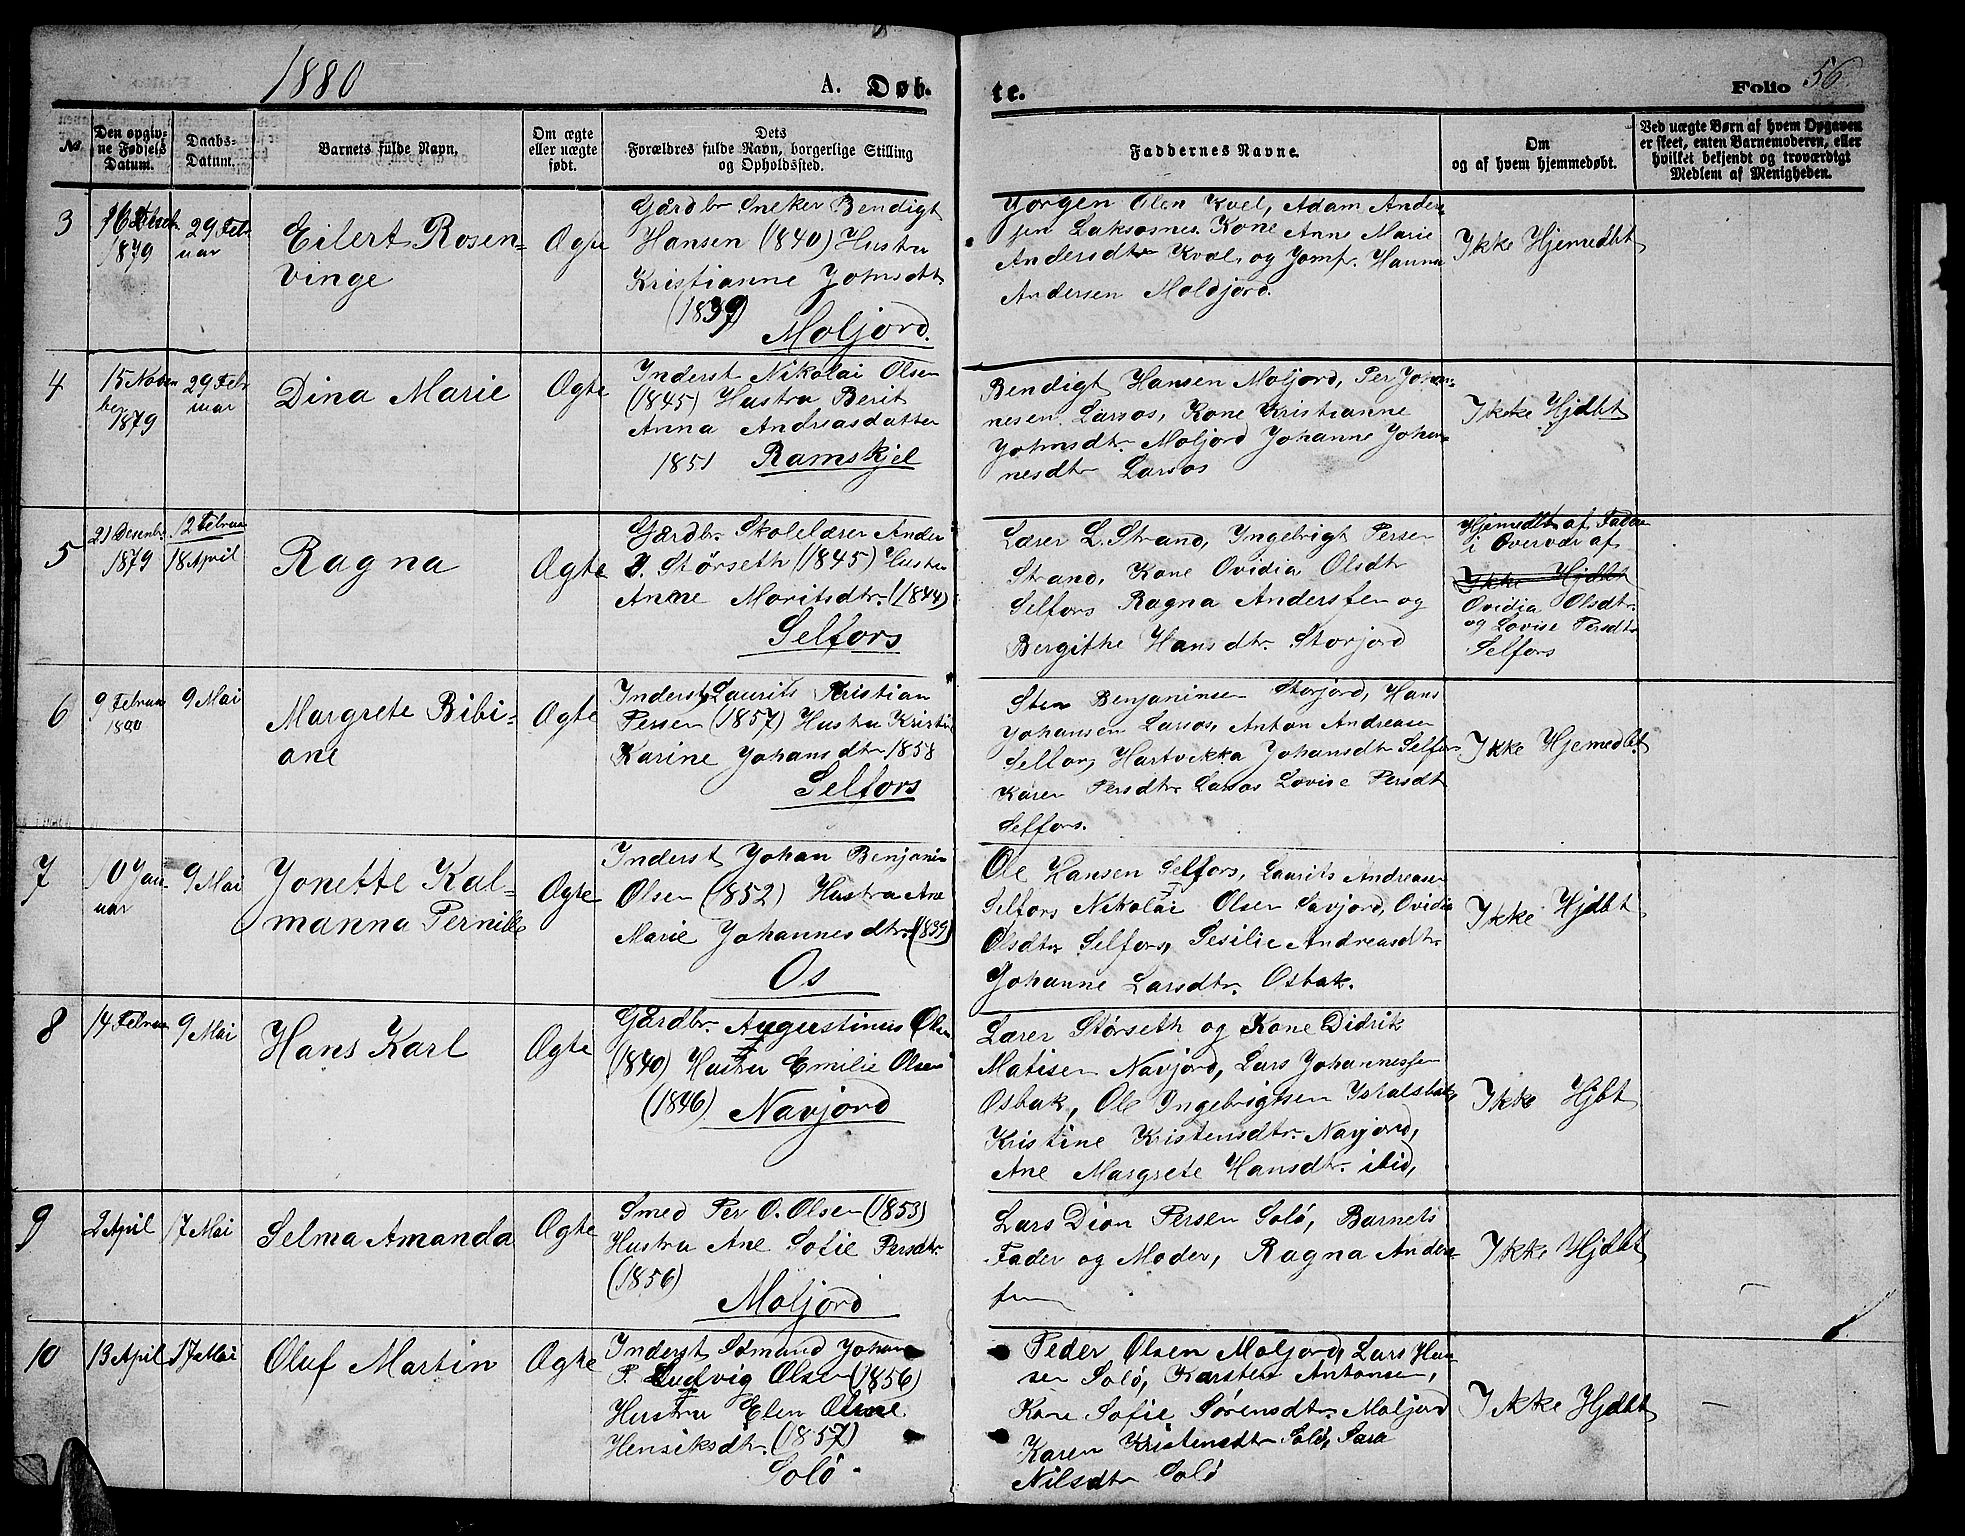 1880
A. Døb-
te.
Folio 56
No.
Den opgiv-
ne Fødsels
Datum.
Daabs-
Datum.
Barnets fulde Navn.
Om ægte
eller uægte
født.
Dets
Forældres fulde Navn, borgerlige Stilling
og Opholdssted.
Faddernes Navne.
Om
og af hvem hjemmedøbt.
Ved uægte Børn af hvem Opgaven
er skeet, enten Barnemoderen, eller
hvilket bekjendt og troværdigt
Medlem af Menigheden.
3
1879
29 Feb-
uar
Eilert Rosen-
vinge
Ægte
Gårdbr Sneker Bendigt
Hansen (1840) Hustru
Kristianne Johnsdtr
(1839)
Moljord.
Jørgen Olsen Kvel, Adam Ander-
sen Laksosnes Kone Anne Marie
Andersdtr Kval, og Jomfr. Hanna
Andersen Moldjord.
Ikke Hjemedbt
4
15 Novem
ber
1879
29 Febr
uar
Dina Marie
Ægte
Inderst Nikolai Olsen
(1845) Hustru Berit
Anna Andreasdatter
1851 Ramskjel
Bendigt Hansen Moljord, Per Johan-
nesen Larsos, Kone Kristianne
Johnsdtr. Moljord Johanne Johan-
nesdtr Larsos
Ikke Hjdbt
5
21 Desembr
1879
12 Februar
18 April
Ragna
Ægte
Gårdbr. Skolelærer Ander
J. Störseth (1845) Hustru
Anne Moritsdtr. (1844)
Selfors
Lærer L. Strand, Ingebrigt Persen
Strand, Kone Ovidia Olsdtr
Selfors Ragna Andersen og
Bergithe Hansdtr. Storjord
Hjemedbt af Fader
i Overvær af
Ikke Hjdbt
Ovidia Olsdtr.
og Lovise Persdtr
Selfors
6
9 Februar
1880
9 Mai
Margrete Bibi-
ane
Ægte
Inderst Laurits Kristian
Persen (1857) Hustru Kristine
Karine Johansdtr 1858
Selfors
Sten Benjaminsen Storjord, Hans
Johansen Larsos, Anton Andreasen
Selfors, Hartvikka Johansdtr Selfors
Karen Persdtr. Larsos Lovise Persdtr
Selfors.
Ikke Hjemedbt
7
10 Jan-
uar
9 Mai
Jonette Kal-
manna Pernille
Ægte
Inderst Johan Benjamin
Olsen (1852) Hustru Ane
Marie Johannesdtr. (1839)
Os
Ole Hansen Selfors, Laurits Andreasen
Selfors Nikolai Olsen Savjord, Ovidia
Olsdtr. Selfors, Sesilie Andreasdtr.
Johanne Larsdtr. Osbak.
Ikke Hjdbt
8
14 Februar
9 Mai
Hans Karl
Ægte
Gårdbr. Augustinus Olsen
(1840) Hustru Emilie Olsen
(1846) Navjord
Lærer Störseth og Kone Didrik
Matisen Navjord, Lars Johannessen
Osbak, Ole Ingebrigtsen Istralsbak
Kristine Kristensdtr. Navjord,
Ane Margrete Hansdtr. ibid,
Ikke Hjbt
9
2 April
17 Mai
Selma Amanda
Ægte
Smed Per O. Olsen (1853)
Hustru Ane Sofie Persdtr.
(1856)
Moljord
Lars Dion Persen Solö, Barnets
Fader og Moder, Ragna Ander-
sen
Ikke Hjdbt
10
13 April
17 Mai
Oluf Martin
Ægte
Inderst Sömand Johan
P. Ludvig Olsen (1856)
Hustru Elen Oline
Henriksdtr. (1857)
Solö.
Peder Olsen Moljord, Lars Han-
sen Solö, Karsten Antonsen,
Kone Sofie Sørensdtr. Moljord
Karen Kristensdtr Solö, Sara
Nilsdtr Solö
Ikke Hjdbt